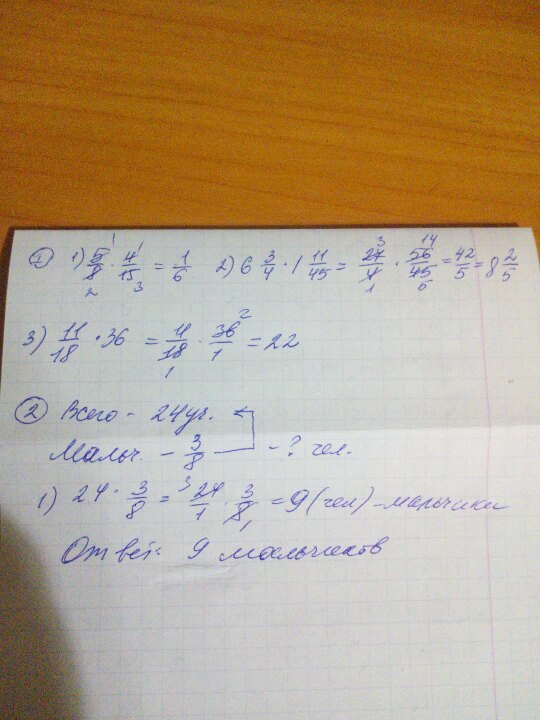 ① 1) 5/8 · 4/15 = 1/6 2) 6 3/4 · 1 11/45 = 27/4 · 56/45 = 42/5 = 8 2/5
3) 11/18 · 36 = 11/18 · 36/1 = 22
② Всего - 24 уч.
Мальч. - 3/8 - ? чел.
1) 24 · 3/8 = 24/1 · 3/8 = 9 (чел) - мальчики
Ответ: 9 мальчиков